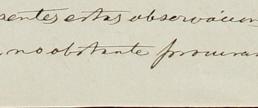 sentes estas observácion
no obstante procurar